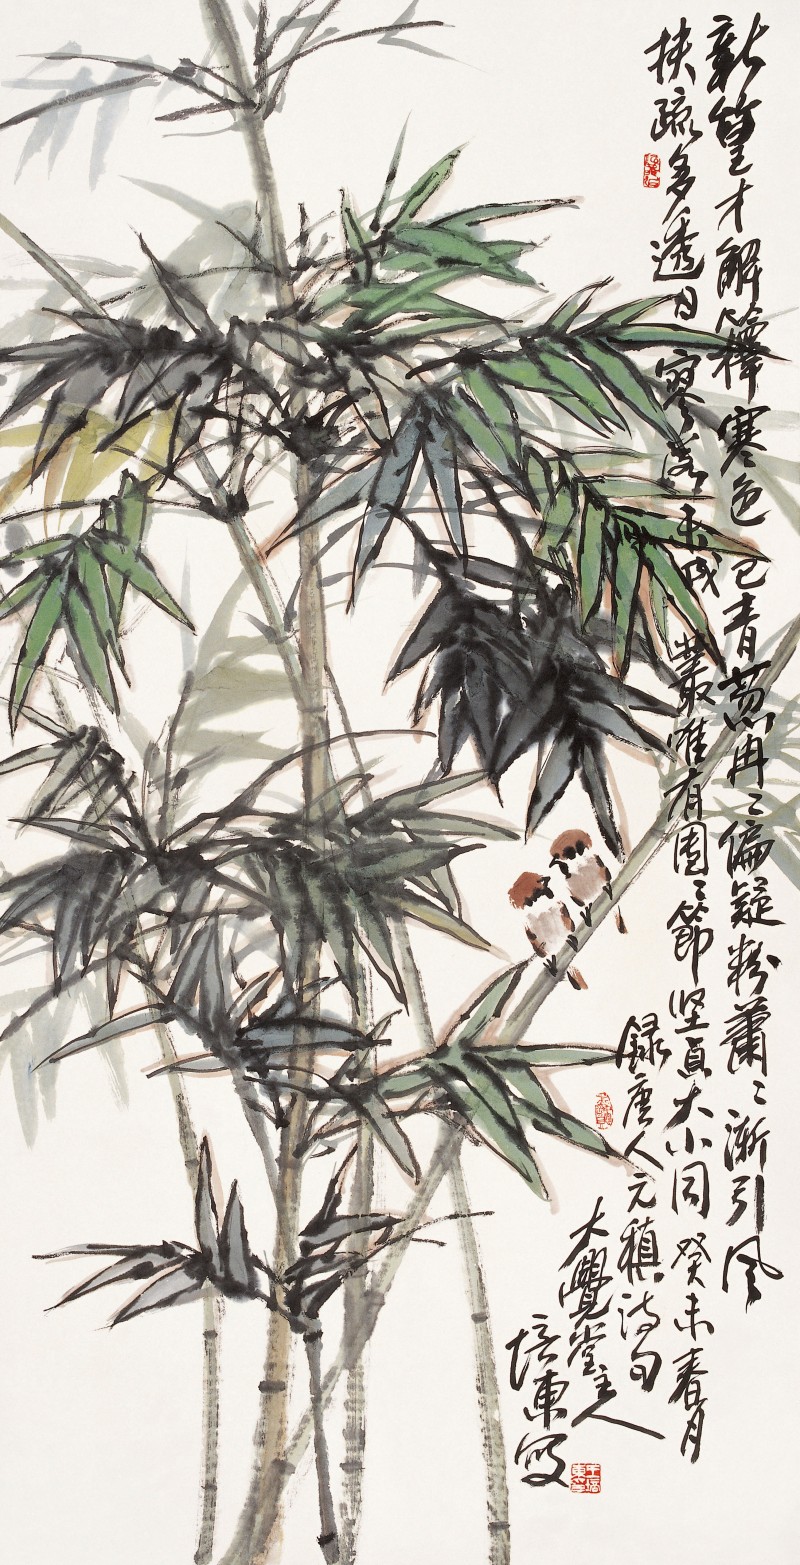 新篁才解籜寒色已青葱冉々偏疑粉蕭々漸引風
扶疏多透日寥落未成叢唯有團々節坚貞大小同癸未春月
録唐人元稹詩句
大覺堂主人
培東寫